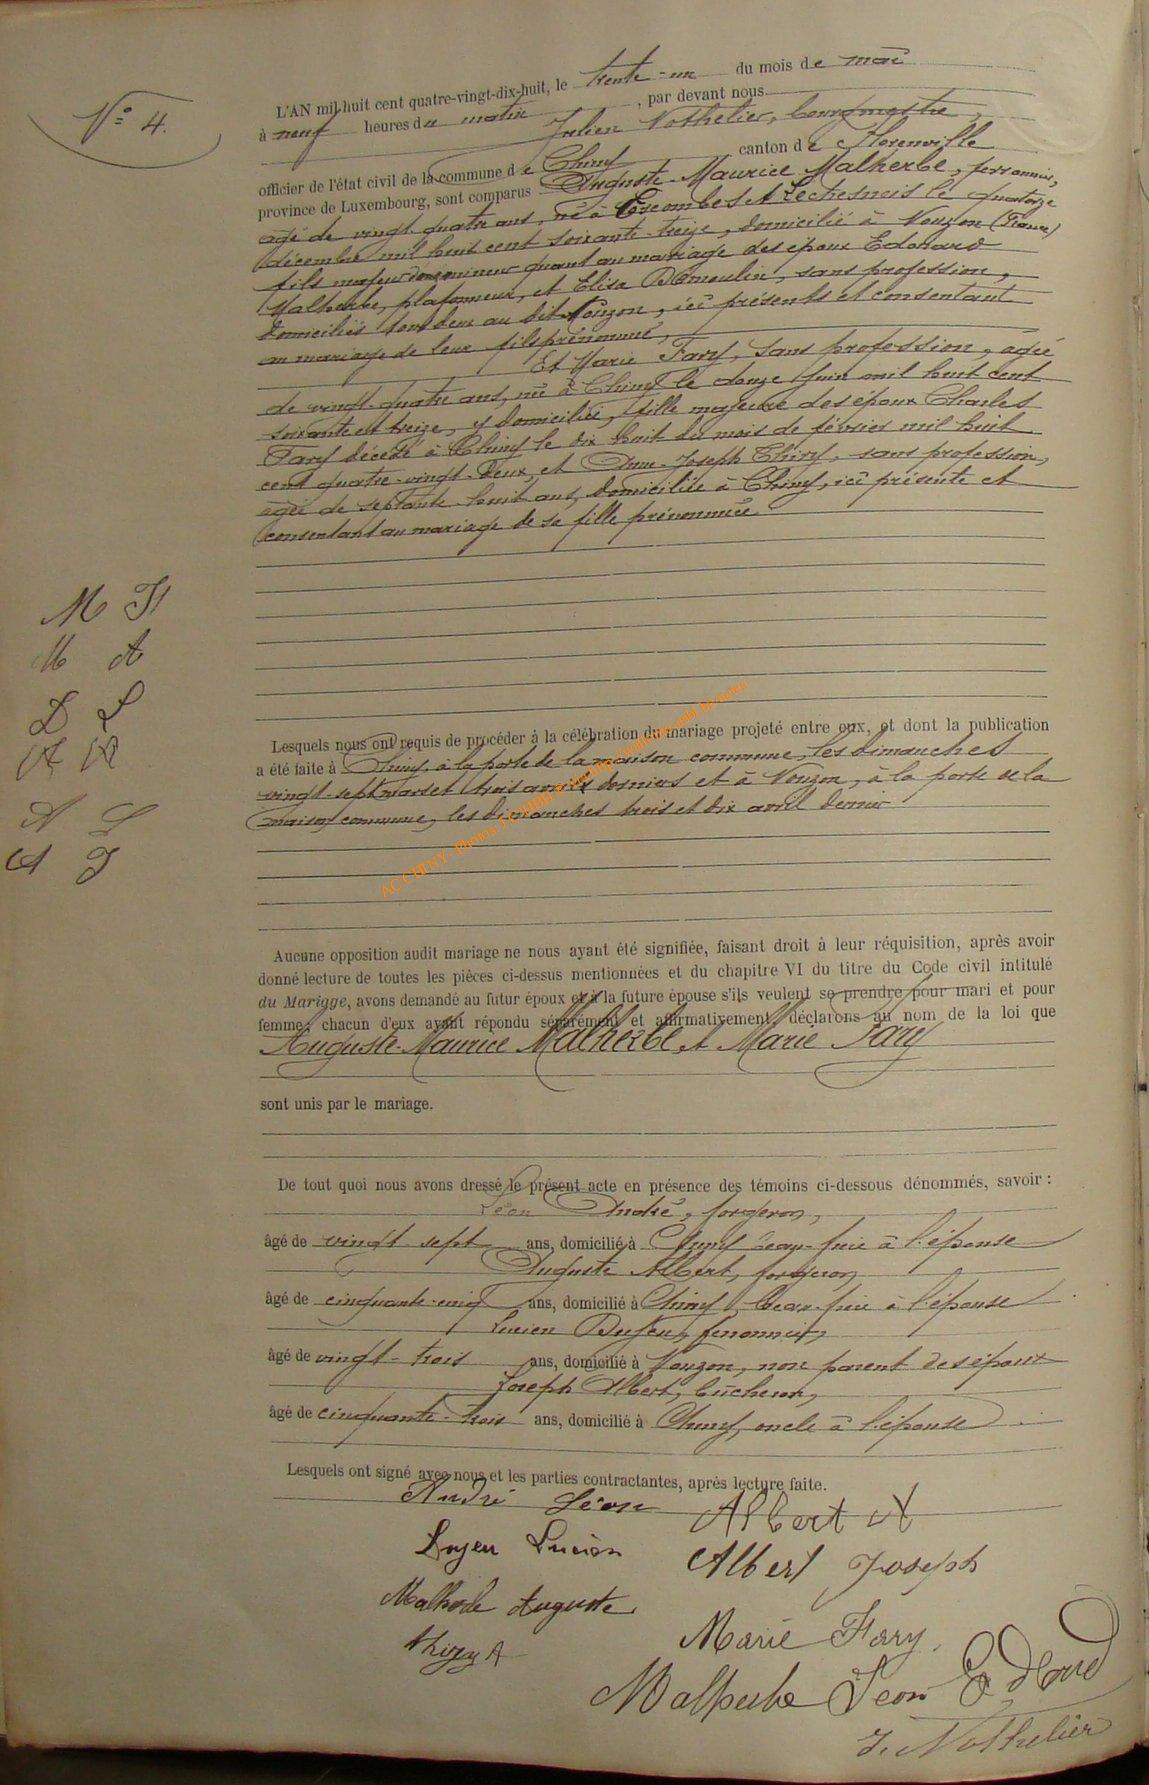 N° 4.
L'AN mil huit cent quatre-vingt-dix-huit, le trente-un du mois de mai
à neuf heures du matin, par devant nous
Julien Nothelier, bourgmestre,
officier de l'état civil de la commune de Chiny canton de Florenville
province de Luxembourg, sont comparus Auguste-Maurice Malherbe,
agé de vingt quatre ans, né à Escombes et Lechesnois le quatorze
décembre mil huit cent soixante-treize, domicilié à Nouzon (France)
fils majeur mineur quant au mariage des époux Edouard
Malherbe, et Elisa Dumoulin, sans profession,
domiciliés tous deux au dit Nouzon, ici présents et consentant
au mariage de leur fils prénommé,
Et Marie Fary, sans profession, agée
de vingt-quatre ans, née à Chiny le douze juin mil huit cent
soixante et treize, y domiciliée, fille majeure des époux Charles
Fary décédé à Chiny le dix huit du mois de février mil huit
cent quatre-vingt-deux, et Anne-Joseph Thiry, sans profession,
agée de septante-huit ans, domiciliée à Chiny, ici présente et
consentant au mariage de sa fille prénommée.
M F
M A
D L
A A
A L
A J
Lesquels nous ont requis de procéder à la célébration du mariage projeté entre eux, et dont la publication
a été faite à Chiny, à la porte de la maison commune, les dimanches
vingt-sept mars et trois avril derniers et à Nouzon, à la porte de la
maison commune, les dimanches trois et dix avril dernier
AC CHINY - Photos
Aucune opposition audit mariage ne nous ayant été signifiée, faisant droit à leur réquisition, après avoir
donné lecture de toutes les pièces ci-dessus mentionnées et du chapitre VI du titre du Code civil intitulé
du Mariage, avons demandé au futur époux et à la future épouse s'ils veulent se prendre pour mari et pour
femme; chacun d'eux ayant répondu séparément et affirmativement, déclarons au nom de la loi que
Auguste-Maurice Malherbe et Marie Fary
sont unis par le mariage.
De tout quoi nous avons dressé le présent acte en présence des témoins ci-dessous dénommés, savoir :
Léon André, forgeron,
âgé de vingt-sept ans, domicilié à Chiny beau-frère à l'épouse
Auguste Albert, forgeron,
âgé de cinquante-cinq ans, domicilié à Chiny, beau-frère à l'épouse
Lucien
âgé de vingt-trois ans, domicilié à Nouzon, non parent des époux
Joseph Albert, bûcheron,
âgé de cinquante-trois ans, domicilié à Chiny, oncle à l'épouse
Lesquels ont signé avec nous et les parties contractantes, après lecture faite.
André Léon
Albert A
Lucien
Albert Joseph
Malherbe Auguste
Marie Fary
Thiry A
Malherbe Léon Edouard
J. Nothelier